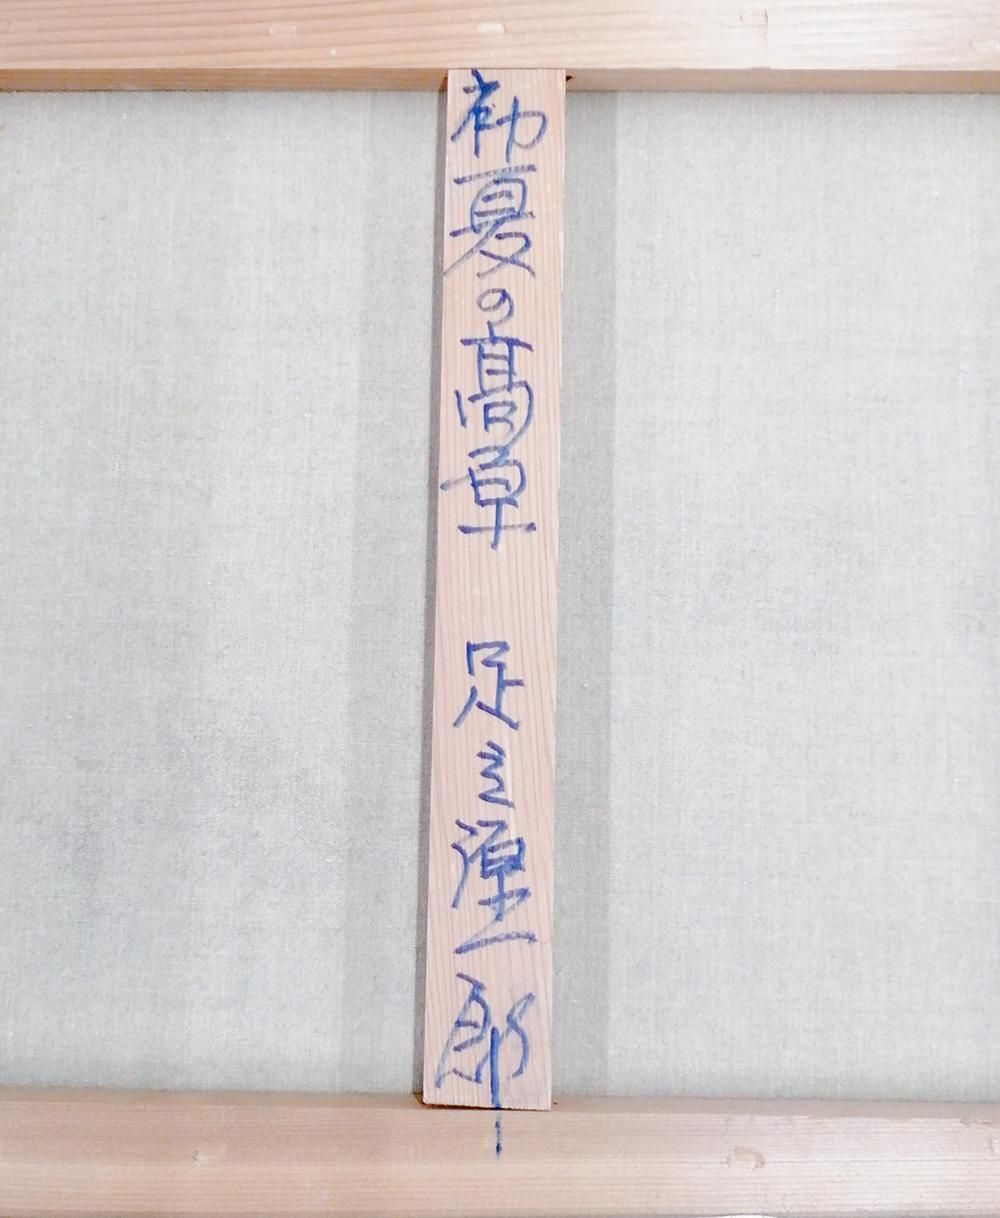 初夏の髙草　足立源一郎